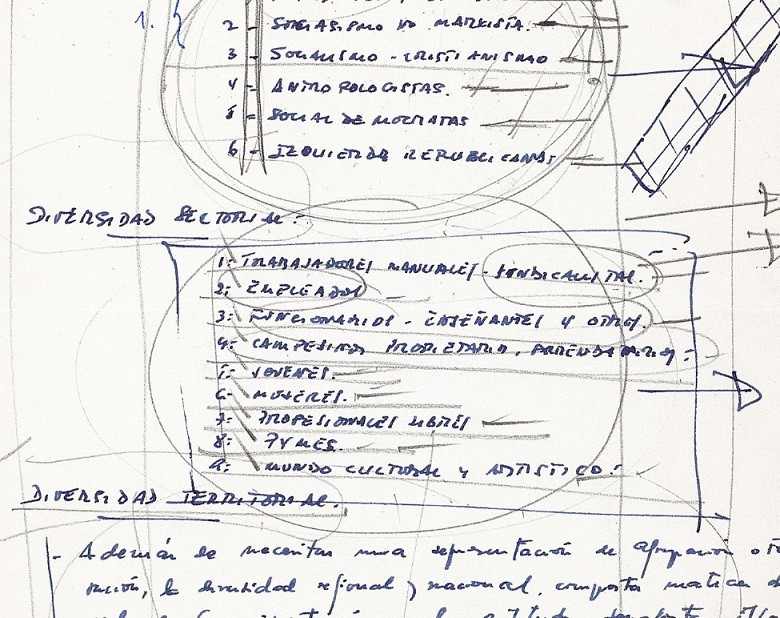 1.
2 - SOCIALISMO NO MARXISTA.
3 - SOCIALISMO - CRISTIANISMO
4 - ANTROPOLOGISTAS.
5 - SOCIAL DEMOCRATAS
6 - IZQUIERDA REPUBLICANA
DIVERSIDAD SECTORIAL:
1: TRABAJADORES MANUALES - SINDICALISTAS.
2: EMPLEADOS
3: FUNCIONARIOS - ENSEÑANTES Y OTROS.
4: CAMPESINOS PROPIETARIOS, ARRENDATARIOS:
5: JOVENES.
6- MUJERES.
7: PROFESIONALES LIBRES
8: PYMES.
9: MUNDO CULTURAL Y ARTISTICO:
DIVERSIDAD TERRITORIAL.
- Además se necesitan una representación de
la diversidad regional y nacional, comporta matices